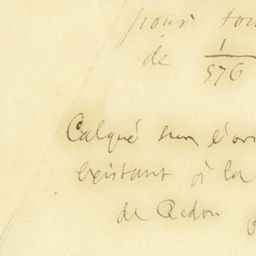 pour tou
de 1/576
Calqué sur l'ori
existant à la
de Redon